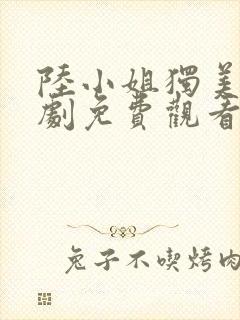 陸小姐獨美
劇免費觀看
兔子不喫烤肉